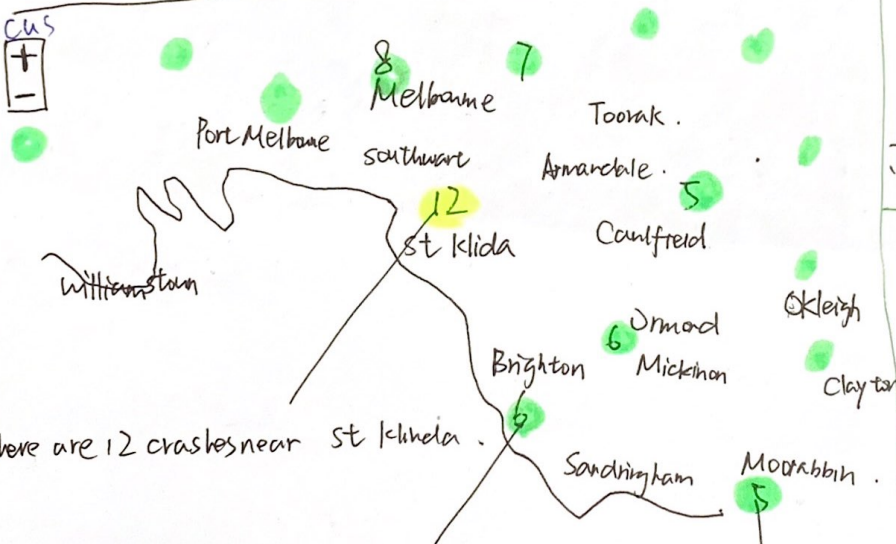 cus
+
-
8
7
Melboume
Toorak .
Port Melboune
southwart
Armandale .
5
12
Caulfreid
St Klida
williamstown
Okleigh
Ormond
6
Mickinon
Brighton
Clayton
6
here are 12 crashes near St Klinda .
Sandringham
Moorabbin .
5